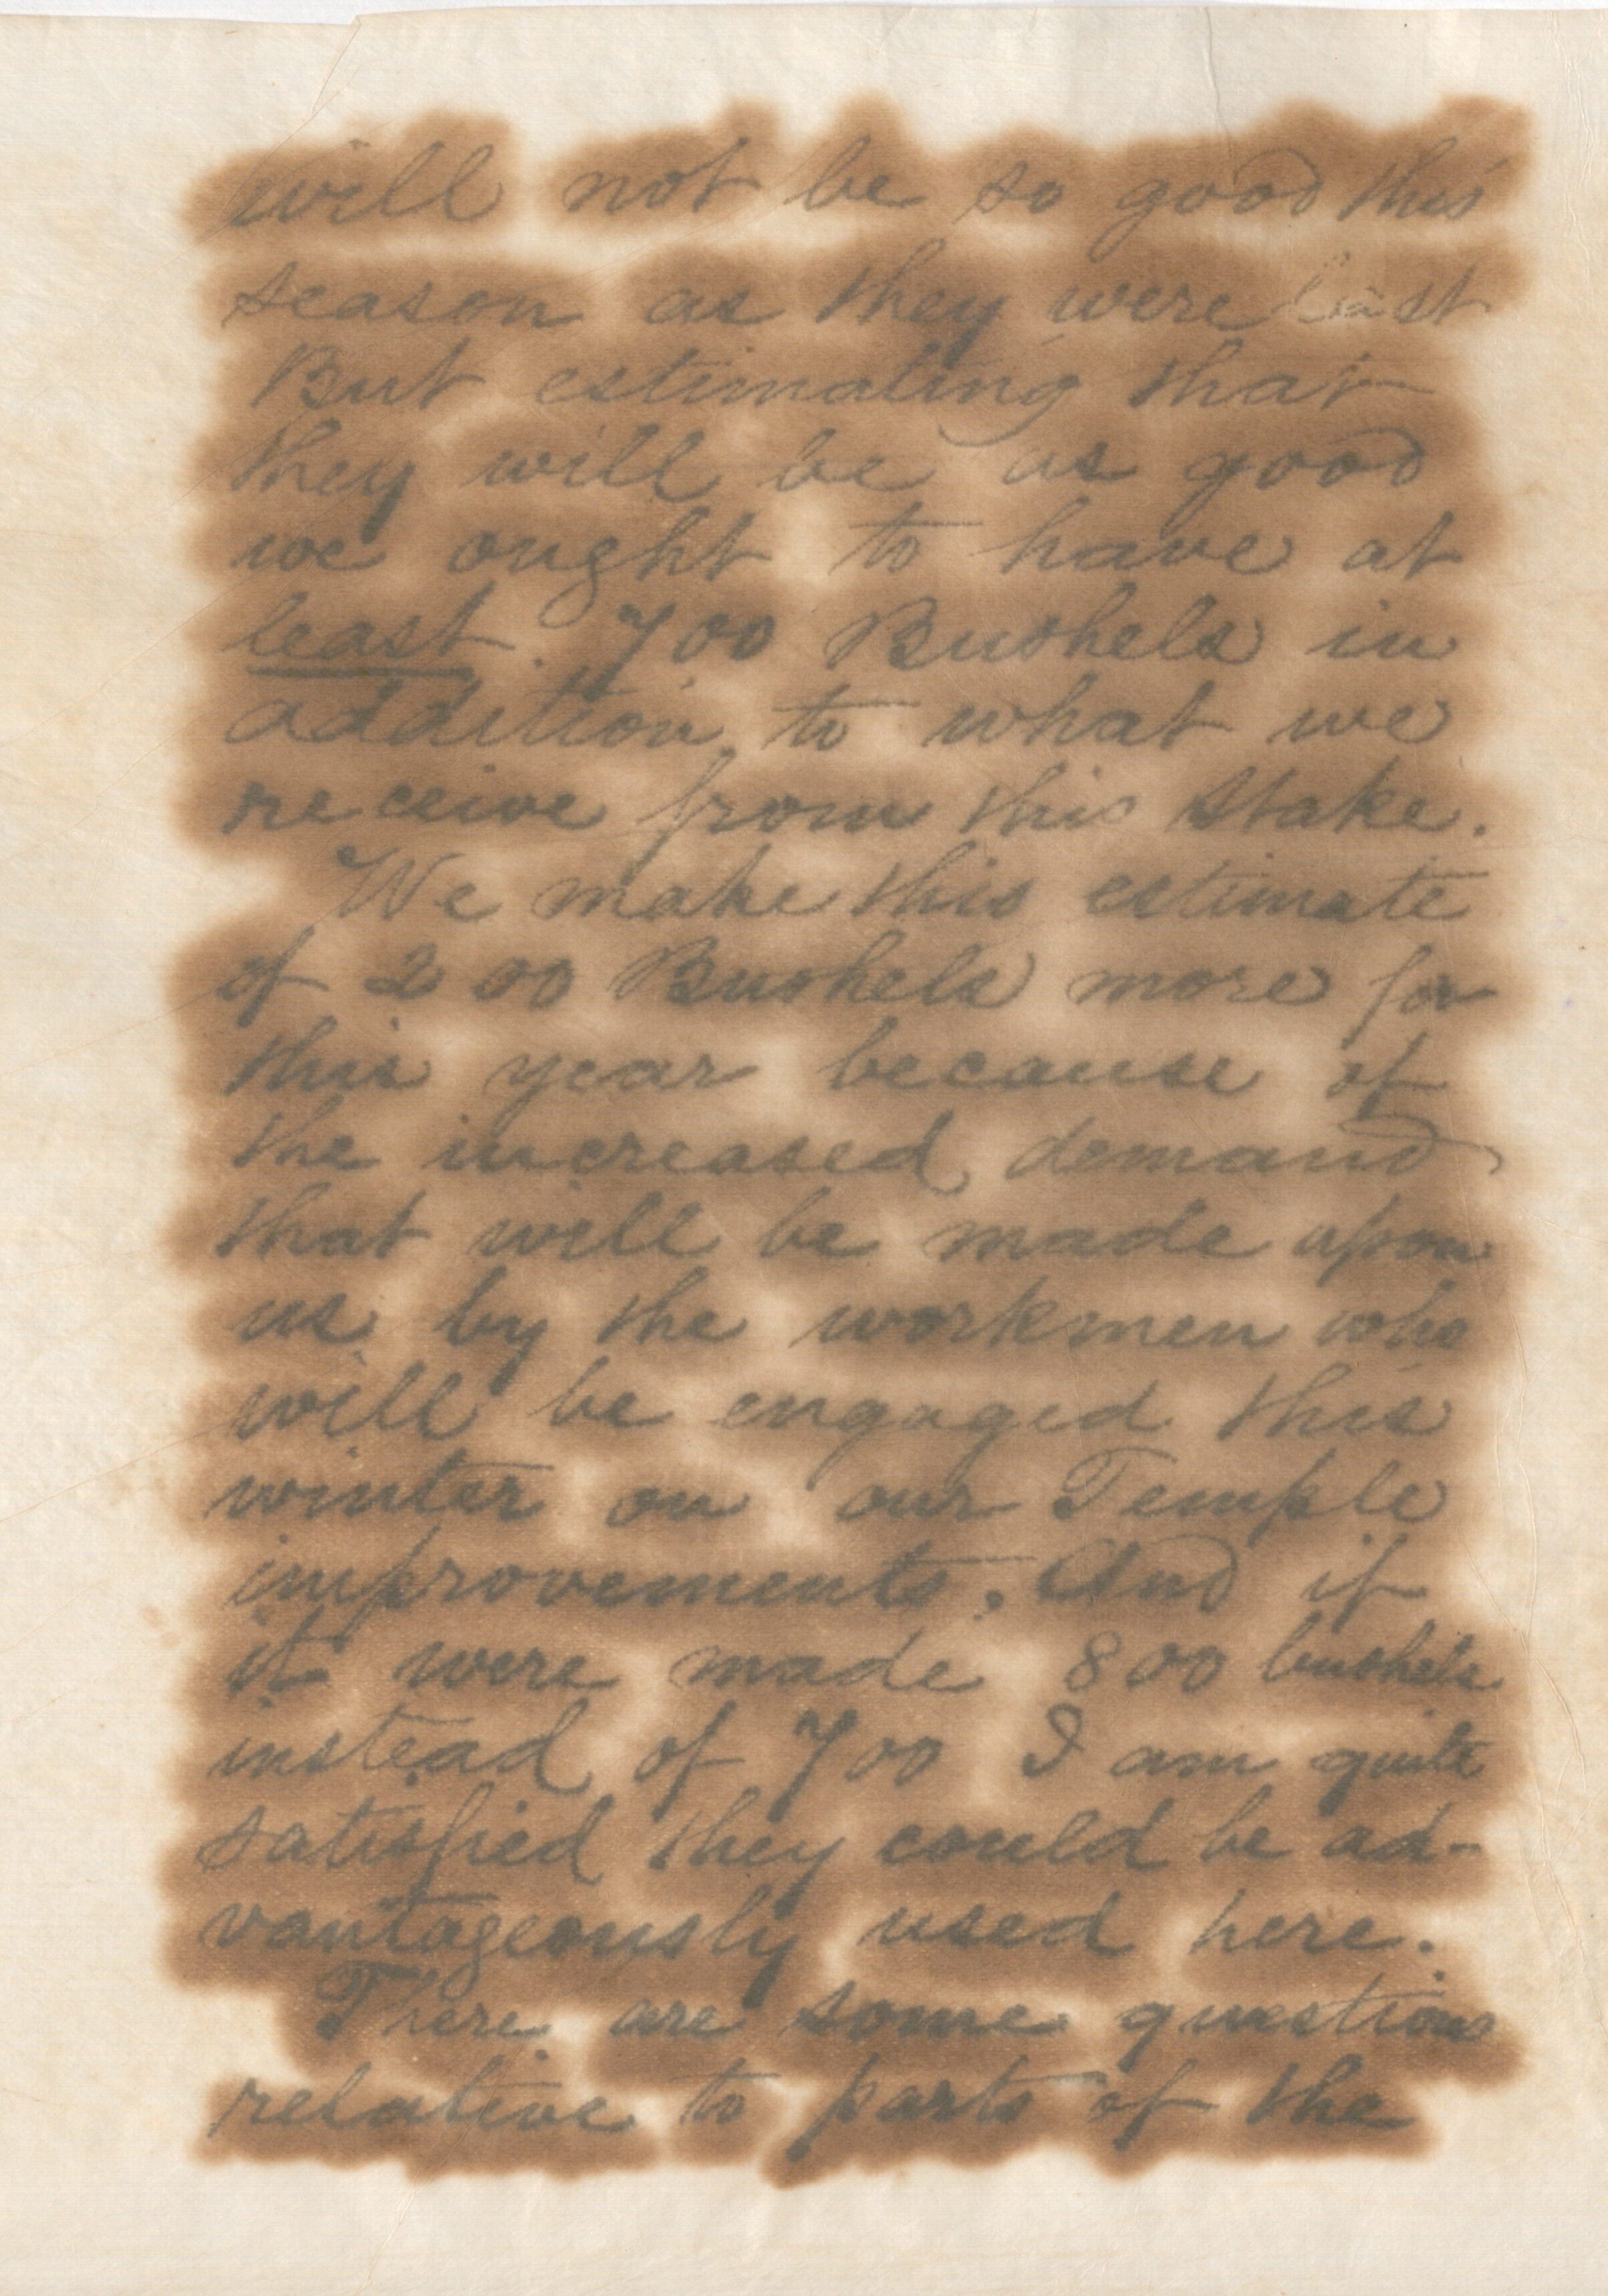 will not be so good this
season as they were last
But estimating that
they will be as good
we ought to have at
least 700 Bushels in
addition to what we
receive from this Stake.
We make this estimate
of 200 Bushels more for
this year because of
the increased demand
that will be made upon
us by the workmen who
will be engaged this
winter on our Temple
improvements. And if
it were made 800 bushels
instead of 700 I am quite
satisfied they could be ad-
vantageously used here.
There are some questions
relative to parts of the